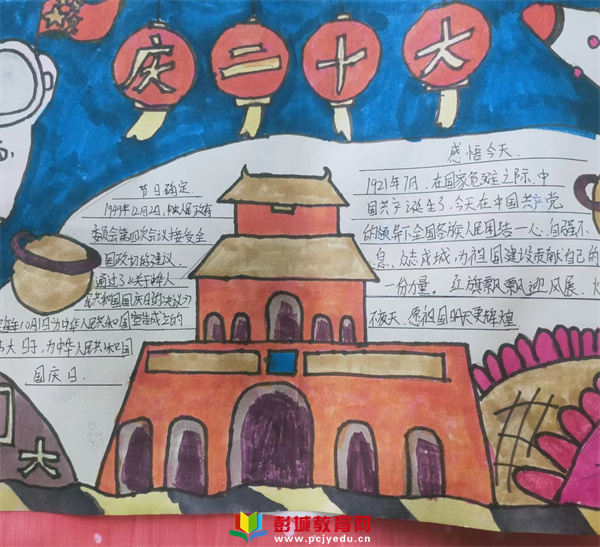 庆二十大
节日确定
1949年12月2日,中央人民政府
委员会第四次会议接受全
国政协的建议,
通过了《关于中华人
民共和国国庆日的决议》
每年10月1日为中华人民共和国宣告成立的
伟大日子,为中华人民共和国
国庆日.
感悟今天.
1921年7月,在国家危难之际,中
国共产诞生了,今天在中国共产党
的领导下全国各族人民团结一心,自强不
息、众志成城,为祖国建设贡献自己的
一份力量。红旗飘飘迎风展、火
不夜天、愿祖国明天更辉煌
大
彭城教育网
www.pcjyedu.cn